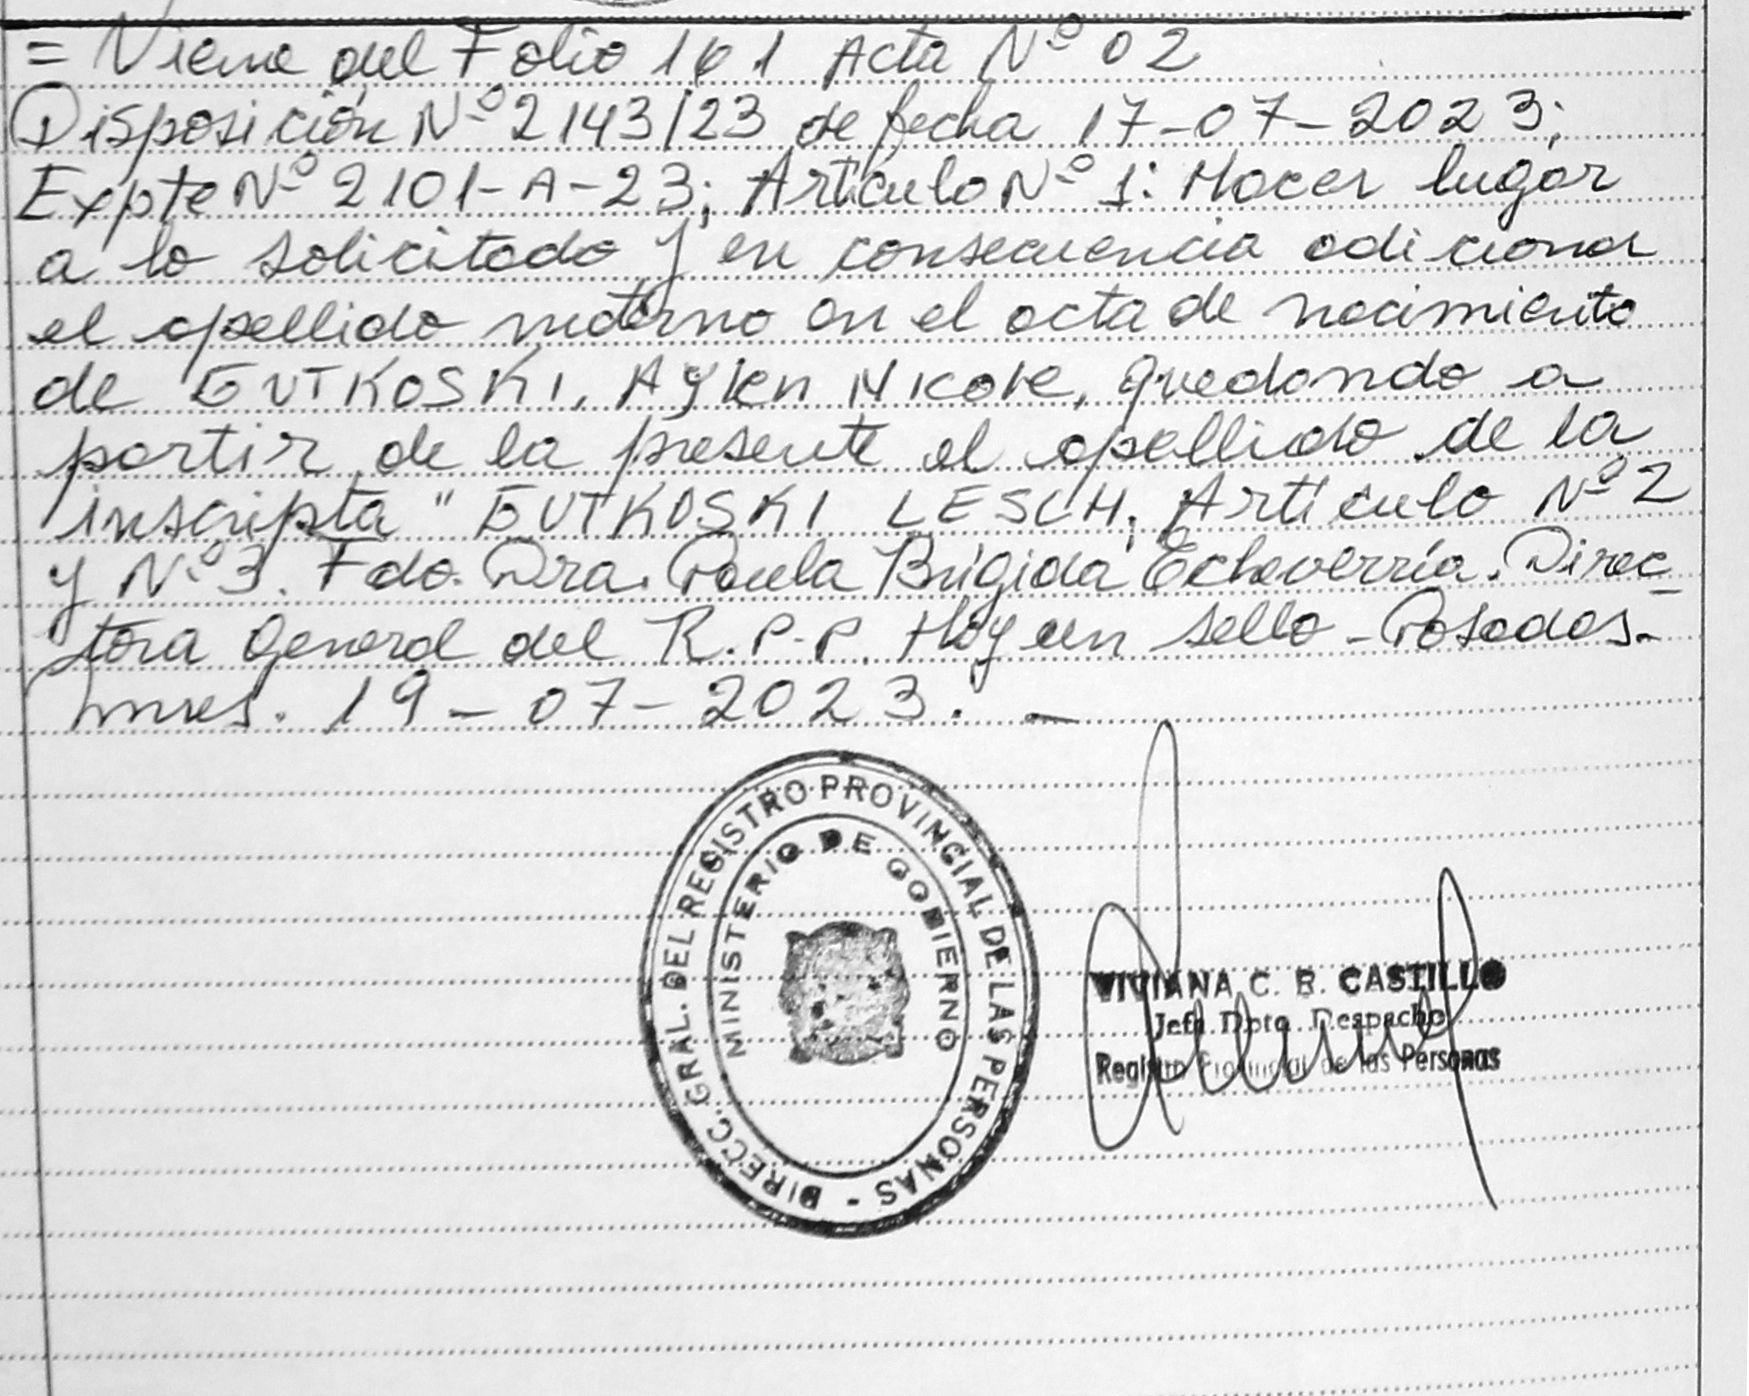 = Viene del Folio 161 Acta Nº 02
Disposición Nº 2143/23 de fecha 17-07-2023;
Expte Nº 2101-A-23; Artículo Nº 1: Hacer lugar
a lo solicitado y en consecuencia adicionar
el apellido materno en el acta de nacimiento
de GUTKOSKI, Aylen Nicole, quedando a
partir de la presente el apellido de la
inscripta " GUTKOSKI LESCH; Artículo Nº 2
y Nº 3. Fdo. Dra. Paula Brígida Echeverría. Direc-
tora General del R.P.P. Hay un sello - Posadas.-
Mnes. 19-07-2023. -
DIRECC. GRAL. DEL REGISTRO PROVINCIAL DE LAS PERSONAS -
MINISTERIO DE GOBIERNO
VIVIANA C. R. CASTILLO
Jefa Dpto. Despacho
Registro Provincial de las Personas